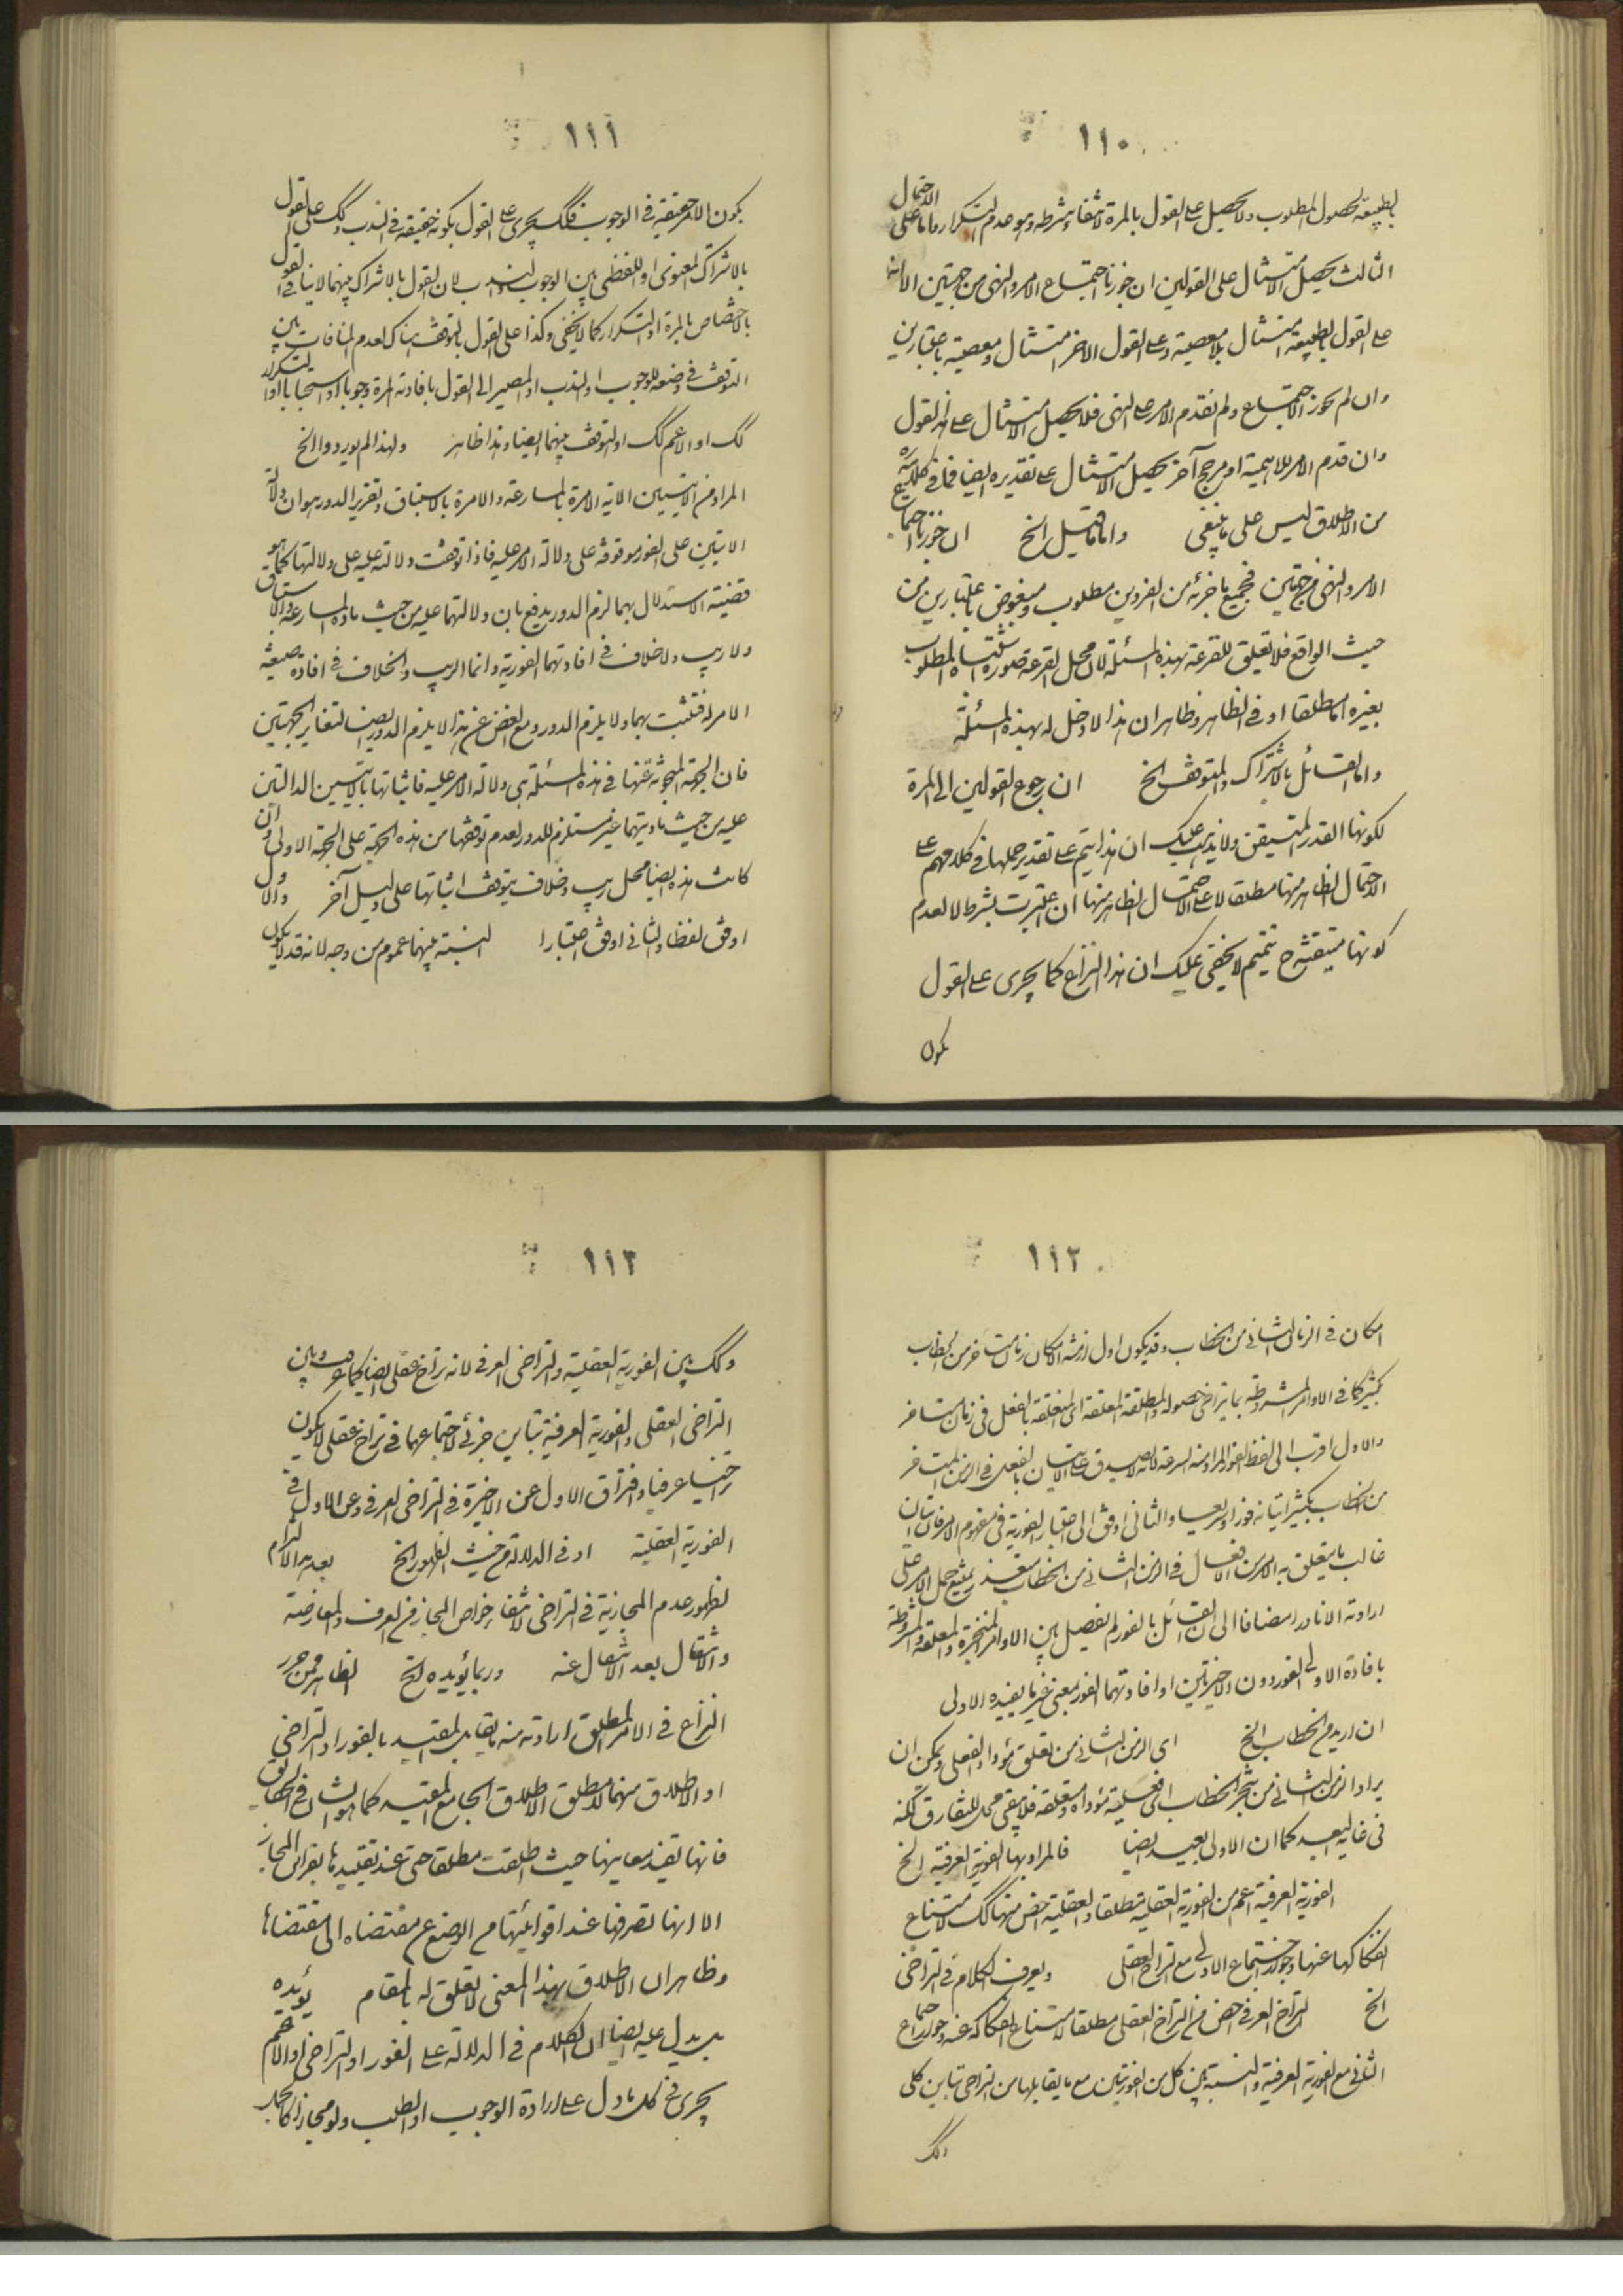 ١١٠
بالطبيعة لحصول المطلوب ولا يحصل على القول بالمرة لانتفاء شرطه وهو عدم التكرار واما على الاحتمال
الثالث يحصل الامتثال على القولين ان جوزنا اجتماع الامر والنهى من جهتين الا انه
على القول بالطبيعة امتثال بلا معصية وعلى القول الاخر امتثال ومعصية باعتبارين
وان لم نجوز الاجتماع ولم نقدم الامر على النهى فلا يحصل الامتثال على هذا القول
وان قدم الامر للاهمية او مرجح آخر يحصل الامتثال على تقديره ايضا فما فى كلامه
من الاطلاق ليس على ما ينبغى واما ما قيل الخ ان جوزنا اجتماع
الامر والنهى من جهتين فجميع ما خرئه من الفردين مطلوب ومبغوض باعتبارين من
حيث الواقع فلا تعلق للقرعة بهذه المسئلة لان محل القرعة صورة اشتباه المطلوب
بغيره اما مطلقا او فى الظاهر وظاهر ان هذا لا دخل له بهذه المسئلة
واما القائل بالاشتراك والمتوقف الخ ان رجوع القولين الى المرة
لكونها القدر المتيقن ولا يذهب عليك ان هذا يتم على تقدير حملها فى كلامهم على
الاحتمال الظاهر منها مطلقا لا على الاحتمال الظاهر منها ان اعتبرت بشرط لا لعدم
كونها متيقنة ح تتميم لا يخفى عليك ان هذا النزاع كما يجرى على القول
بكون
١١١
بكون الامر حقيقة فى الوجوب فكك يجرى على القول بكونه حقيقة فى الندب وكك على القول
بالاشتراك المعنوى او اللفظى بين الوجوب والندب لان القول بالاشتراك بينهما لا ينافى القول
بالاختصاص بالمرة او التكرار كما لا يخفى وكذا على القول بالتوقف هناك لعدم المنافات بين
التوقف فى وضعه للوجوب او الندب او المصير الى القول بافادته المرة وجوبا او استحبابا او التكرار
كك او الاعم كك او التوقف بينهما ايضا وهذا ظاهر ولهذا لم يوردوا الخ
المراد من الايتين الاية الامرة بالمسارعة والامرة بالاستباق وتقرير الدور هو ان دلالة
الايتين على الفور موقوفة على دلالة الامر عليه فاذا توقفت دلالته عليه على دلالتها كما هو
قضية الاستدلال بهما لزم الدور يدفع بان دلالتهما عليه من حيث مادة المسارعة والاستباق
ولا ريب ولا خلاف فى افادتهما الفورية وانما الريب والخلاف فى افادة صيغة
الامر له فتثبت بهما ولا يلزم الدور ومع الغض عن هذا لا يلزم الدور ايضا لتغاير الجهتين
فان الجهة المبحوثة عنها فى هذه المسئلة هى دلالة الامر عليه فاثباتها بالايتين الدالتين
عليه من حيث مادتيهما غير مستلزم للدور لعدم توقفها من هذه الجهة على الجهة الاولى وان
كانت هذه ايضا محل ريب وخلاف يتوقف اثباتها على دليل آخر والاول
اوفق لفظا والثانى اوفق اعتبارا النسبة بينهما عموم من وجه لانه قد لا يكون
١١٢
امكان فى الزمان الثانى من الخطاب وقد يكون اول ازمنة الامكان زمان متاخر من الخطاب
بكثير كما فى الاوامر المشروطة بما يتراخى حصوله والمطلقة المعلقة اى المتعلقة بالفعل فى زمان متاخر
والاول اقرب الى لفظ الفور المراد منه السرعة لانه لا يصدق على الاتيان بالفعل فى الزمن المتاخر
من الخطاب بكثير اتيانه فورا وسريعا والثانى اوفق الى اعتبار الفورية فى مفهوم الامر فان اتيان
غالب ما يتعلق به الامر من الافعال فى الزمن الثانى من الخطاب متعذر يمتنع حمل الامر على
ارادته الا نادرا مضافا الى ان القائل بالفور لم يفصل بين الاوامر المنجزة والمعلقة والمشروطة
بافادة الاولى الفور دون الاخيرتين او افادتهما الفور بمعنى غير ما يفيده الاولى
ان اريد من الخطاب الخ اى الزمن الثانى من تعلق مؤداه الفعلى ويمكن ان
يراد الزمن الثانى من تنجز الخطاب اى فعلية مؤداه ومتعلقه فلا يبقى محل للتفارق لكنه
فى غاية البعد كما ان الاولى بعيد ايضا فالمراد بها الفورية العرفية الخ
الفورية العرفية اعم من الفورية العقلية مطلقا والعقلية اخص منها كك لامتناع
انفكاكها عنها وجواز اجتماع الاولى مع التراخى العقلى ويعرف الكلام فى التراخى
الخ التراخى العرفى اخص من التراخى العقلى مطلقا لامتناع انفكاكه عنه وجواز اجتماع
الثانى مع الفورية العرفية والنسبة بين كل من الفوريتين مع ما يقابلها من التراخى تباين كلى
وكك
١١٣
وكك بين الفورية العقلية والتراخى العرفى لانه تراخ عقلى ايضا كما عرفت وبين
التراخى العقلى والفورية العرفية تباين جزئى لاجتماعهما فى تراخ عقلى لا يكون
تراخيا عرفيا وافتراق الاول عن الاخيرة فى التراخى العرفى وعن الاول فى
الفورية العقلية او فى الدلالة من حيث الظهور الخ بعد هذا الالزام
لظهور عدم المجازية فى التراخى لانتفاء خواص المجاز من العرف والمعارضة
والانتقال بعد الانتقال عنه وربما يؤيده الخ الظاهر ممن حرر
النزاع فى الامر المطلق ارادته منه ما يقابل المقيد بالفور او التراخى
او الاطلاق منهما لا مطلق الاطلاق الجامع للمقيد كما هو الشان فى الحقايق
فانها تفيد معانيها حيث اطلقت مطلقا حتى عند تقييدها بقرائن المجاز
الا انها تصرفها عند اقترانها من الوضع عن مقتضاه الى مقتضاها
وظاهر ان الاطلاق بهذا المعنى لا تعلق له بالمقام يؤيده
بل يدل عليه ايضا ان الكلام فى الدلالة على الفور او التراخى او الاعم
يجرى فى كل ما دل على ارادة الوجوب او الطلب ولو مجازا كالجمل